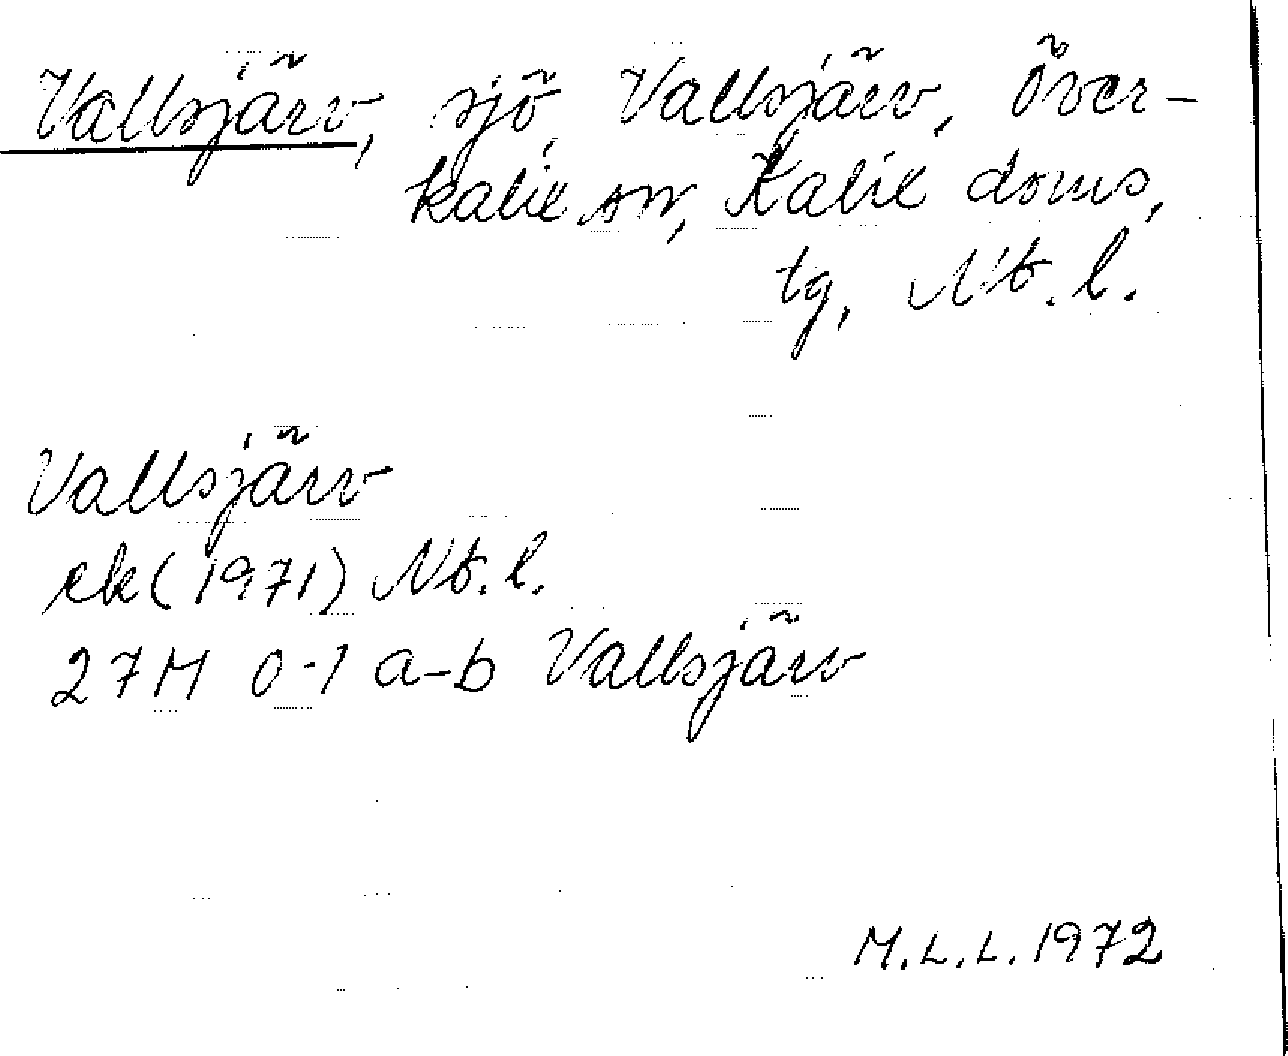 Vallsjärv, sjö, Vallsjärv, Över-
kalix sn, Kalix doms,
tg, Nb. l.
Vallsjärv
ek (1971) Nb. l.
27M 0-1 a-b Vallsjärv
M.L.L. 1972